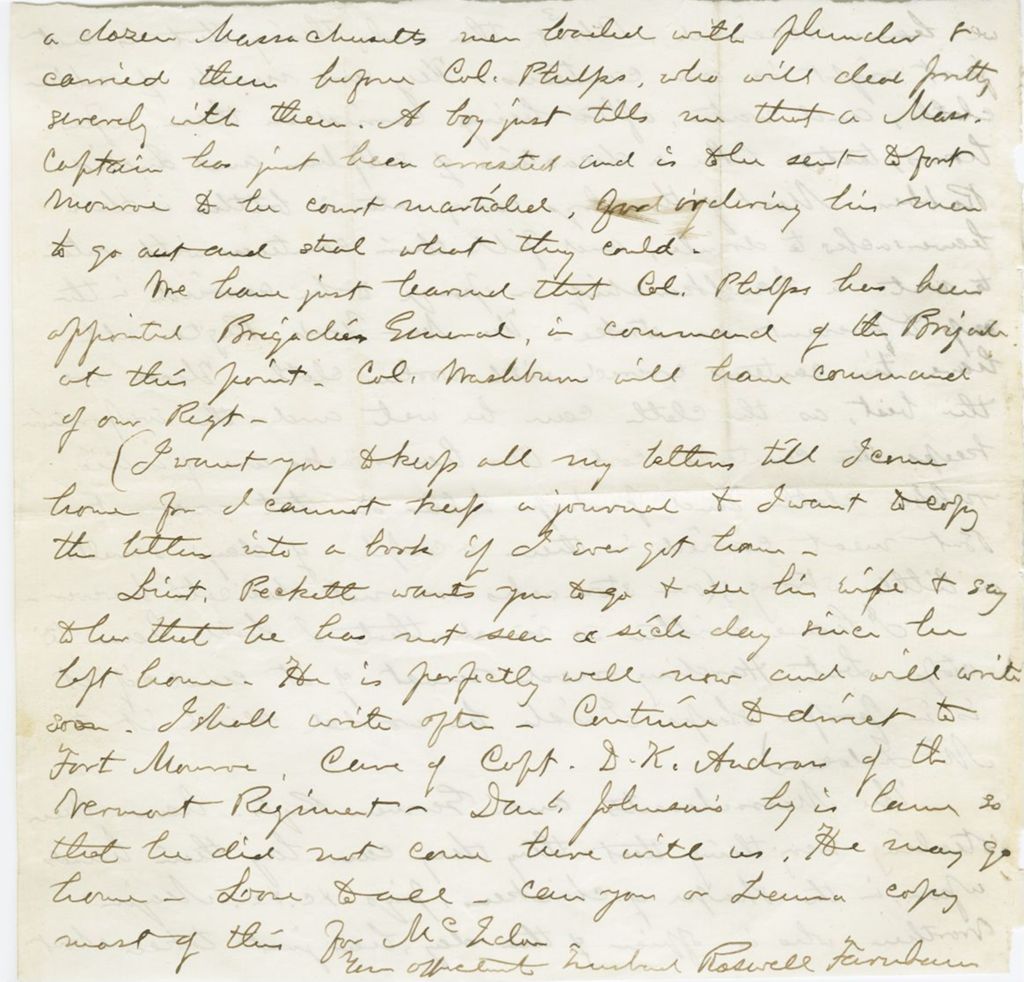 a dozen Massachusetts men loaded with plunder &
carried them before Col. Phelps, who will deal pretty
severely with them. A boy just tells me that a Mass.
Captain has just been arrested and is to be sent to fort
Monroe to be court martialed, for ordering his men
to go out and steal what they could.
We have just learned that Col. Phelps has been
appointed Brigadier General, in command of the Brigade
at this point - Col. Washburn will have command
of our Regt -
(I want you to keep all my letters till I come
home for I cannot keep a journal & I want to copy
the letters into a book if I ever get home -
Lieut. Peckett wants you to go & see his wife & say
to her that he has not seen a sick day since he
left home - He is perfectly well now and will write
soon. I shall write often - Continue to direct to
Fort Monroe, Care of Capt. D. K. Andros of the
Vermont Regiment - Danl. Johnson's leg is lame so
that he did not come here with us. He may go
home - Love to all - Can you or Laura copy
most of this for McIndoe
Your affectionate husband Roswell Farnham